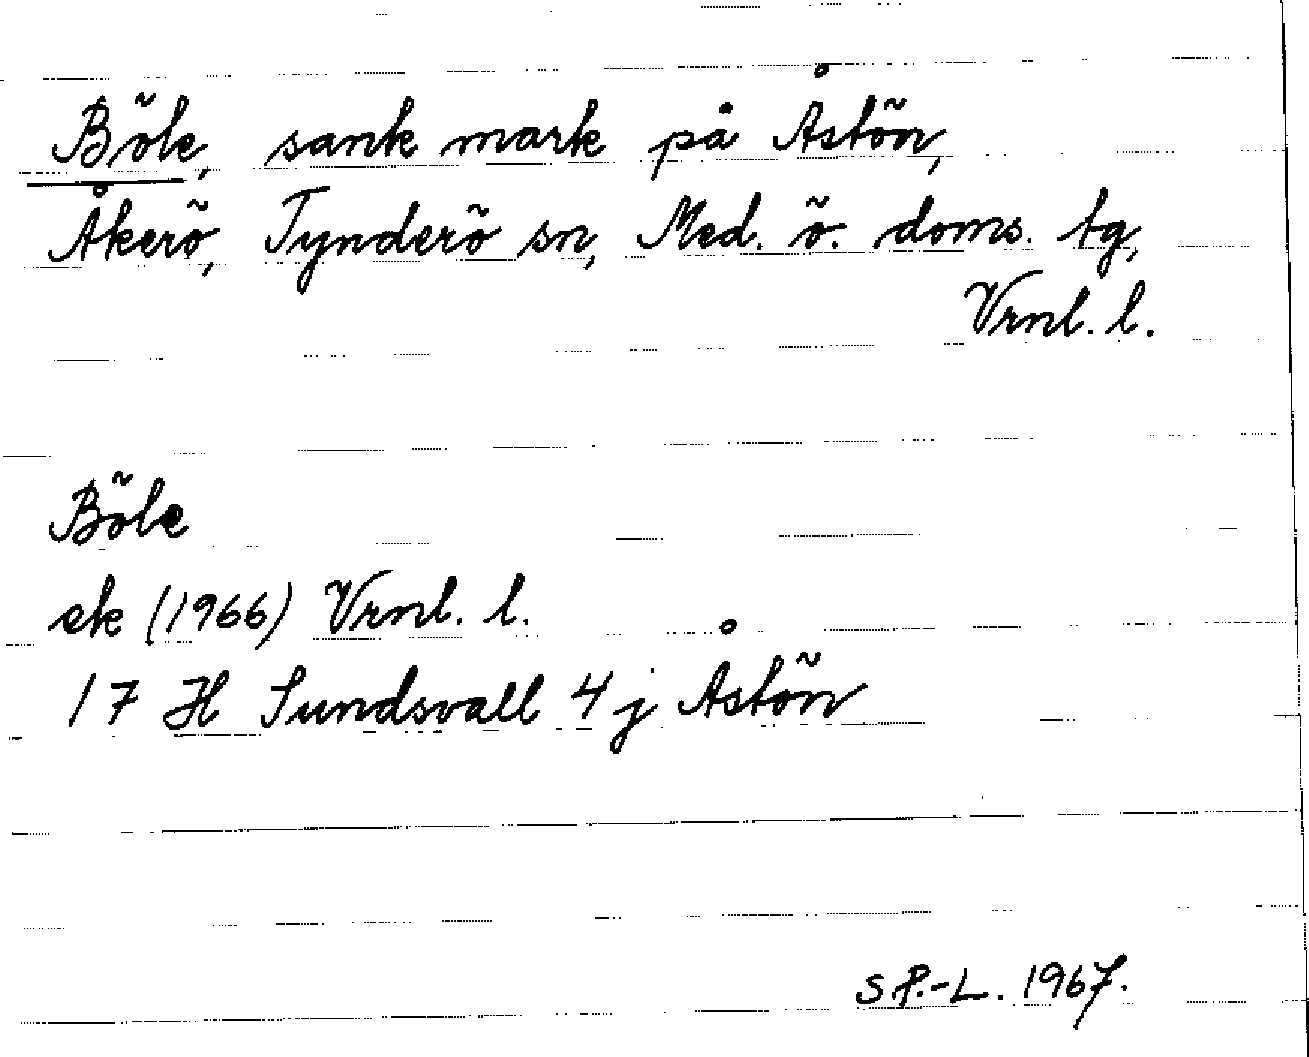 Böle, sank mark på Åstön,
Åkerö, Tynderö sn, Med. ö. doms. tg,
Vrnl. l.
Böle
ek (1966) Vrnl. l.
17 H Sundsvall 4 j Åstön
S P.-L. 1967.